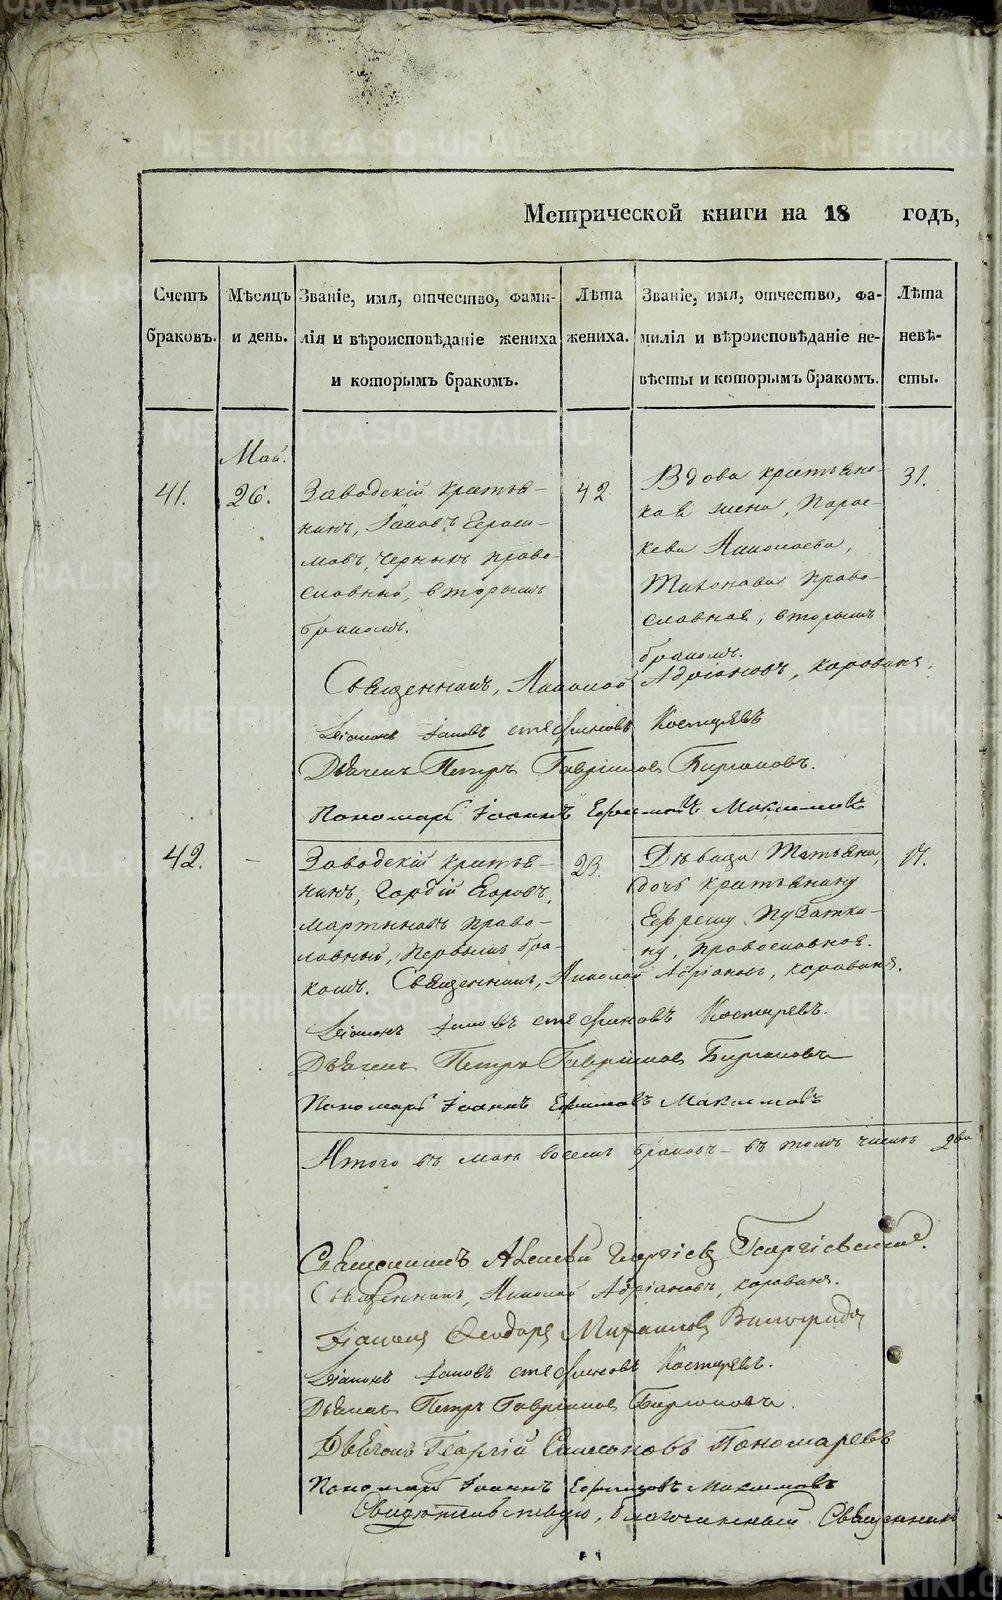 METRIKI.GASO-URAL.RU
Метрической книги на 18 годъ,
Счетъ браковъ.
Мѣсяцъ и день.
Званіе, имя, отчество, фами-
лія и вѣроисповѣданіе жениха
и которымъ бракомъ.
Лѣта жениха.
Званіе, имя, отчество, фа-
милія и вѣроисповѣданіе не-
вѣсты и которымъ бракомъ.
Лѣта невѣ-
сты.
Май.
41.
26.
Заводскій крестья-
нинъ, Іаковъ Гераси-
мовъ, Черныхъ право-
славный, вторымъ
бракомъ.
42
Вдова крестьянс-
кая жена, Парас-
кева Николаева,
Тихонова право-
славная, вторымъ
бракомъ.
31.
Священникъ, Николай Адріановъ, Коровинъ.
Діаконъ Іаковъ Стефановъ Костаревъ
Дьячекъ Петръ Гавріиловъ Бирюковъ.
Пономарь Іоаннъ Ефимовъ Максимовъ
42.
—
Заводскій крестья-
нинъ, Гордій Егоровъ,
Мартыновъ право-
славный, первымъ бра-
комъ.
23.
Дѣвица Татьяна,
дочь крестьянину
Ефрему Пузатки-
ну, православная.
17.
Священникъ, Николай Адріановъ, Коровинъ.
Діаконъ Іаковъ Стефановъ Костаревъ.
Дьячекъ Петръ Гавріиловъ Бирюковъ
Пономарь Іоаннъ Ефимовъ Максимовъ
Итого въ маѣ восемь браковъ – въ томъ числѣ два
Священникъ Алексѣй Георгіевъ Георгіевскій.
Священникъ, Николай Адріановъ, Коровинъ.
Діаконъ Ѳеодоръ Михаиловъ
Діаконъ Іаковъ Стефановъ Костаревъ.
Дьячекъ Петръ Гавріиловъ Бирюковъ.
Дьячекъ Георгій Симеоновъ Пономаревъ
Пономарь Іоаннъ Ефимовъ Максимовъ
Свидѣтельствую, благочинный Священникъ